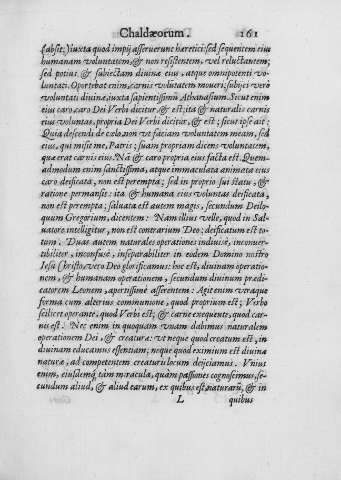 Chaldæorum. 161
(absit) iuxta quod impij asseruerunt hæretici: sed sequentem eius
humanam voluntatem, & non resistentem, vel reluctantem;
sed potius & subiectam diuinæ eius, atque omnipotenti vo-
luntati. Oportebat enim, carnis volutatem moueri; subijci verò
voluntati diuinæ, iuxta sapientissimũ Athanasium. Sicut enim
eius caro, caro Dei Verbi dicitur, & est; ita & naturalis carnis
eius voluntas, propria Dei Verbi dicitur, & est; sicut ipse ait:
Quia descendi de cælo, non vt faciam voluntatem meam, sed
eius, qui misit me, Patris; suam propriam dicens voluntatem,
quæ erat carnis eius. Nã & caro propria eius facta est. Quem-
admodum enim sanctissima, atque immaculata animata eius
caro deificata, non est perempta; sed in proprio sui statu, &
ratione permansit: ita & humana eius voluntas deificata,
non est perempta; saluata est autem magis, secundum Deilo-
quum Gregorium, dicentem: Nam illius velle, quod in Sal-
uatore intelligitur, non est contrarium Deo; deificatum est to-
tum. Duas autem naturales operationes indiuisè, inconuer-
tibiliter, inconfusè, inseparabiliter in eodem Domino nostro
Iesu Christo, vero Deo glorificamus: hoc est, diuinam operatio-
nem, & humanam operationem, secundum diuinum prædi-
catorem Leonem, apertissimè asserentem: Agit enim vtraque
forma cum alterius communione, quod proprium est; Verbo
scilicet operante, quod Verbi est; & carne exequente, quod car-
nis est. Nec enim in quoquam vnam dabimus naturalem
operationem Dei, & creaturæ: vt neque quod creatum est, in
diuinam educamus essentiam; neque quod eximium est diuinæ
naturæ, ad competentem creaturis locum deijciamus. Vnius
enim, eiusdemq́; tàm miracula, quàm passiones cognoscimus, se-
cundum aliud, & aliud earum, ex quibus est, naturarũ, & in
L quibus